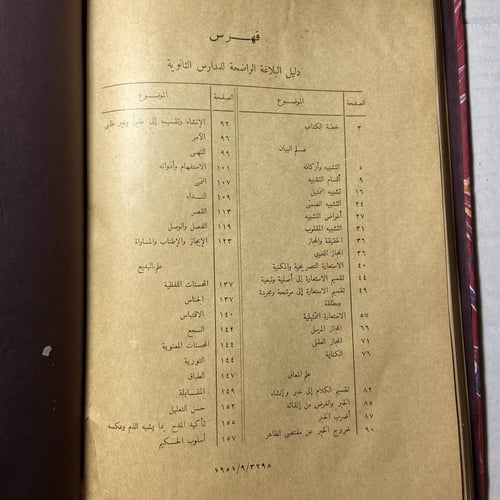 فهرس
دليل البلاغة الواضحة للمدارس الثانوية
الصفحة الموضوع
٣ خطبة الكتاب
علم البيان
٥ التشبيه وأركانه
٩ أقسام التشبيه
١٦ تشبيه التمثيل
٢٤ التشبيه الضمنى
٢٧ أغراض التشبيه
٣١ التشبيه المقلوب
٣٦ الحقيقة والمجاز
٣٦ المجاز اللغوى
٤٠ الاستعارة التصريحية والمكنية
٤٤ تقسيم الاستعارة إلى أصلية وتبعية
٤٩ تقسيم الاستعارة إلى مرشحة ومجردة
ومطلقة
٥٧ الاستعارة التمثيلية
٦٦ المجاز المرسل
٧١ المجاز العقلى
٧٦ الكناية
علم المعانى
٨٢ تقسيم الكلام إلى خبر وإنشاء
٨٥ الخبر والغرض من إلقائه
٨٧ أضرب الخبر
٩٠ خروج الخبر عن مقتضى الظاهر
الصفحة الموضوع
٩٢ الإنشاء وتقسيمه إلى طلبى وغير طلبى
٩٦ الأمر
٩٩ النهى
١٠١ الاستفهام وأدواته
١٠٧ التمنى
١٠٩ النداء
١١٣ القصر
١١٩ الفصل والوصل
١٢٣ الإيجاز والإطناب والمساواة
علم البديع
١٣٧ المحسنات اللفظية
١٣٧ الجناس
١٤٠ الاقتباس
١٤٢ السجع
١٤٤ المحسنات المعنوية
١٤٤ التورية
١٤٧ الطباق
١٤٩ المقابلة
١٥٢ حسن التعليل
١٥٥ تأكيد المدح بما يشبه الذم وعكسه
١٥٧ أسلوب الحكيم
١٩٥١/٩/٣٢٩٨